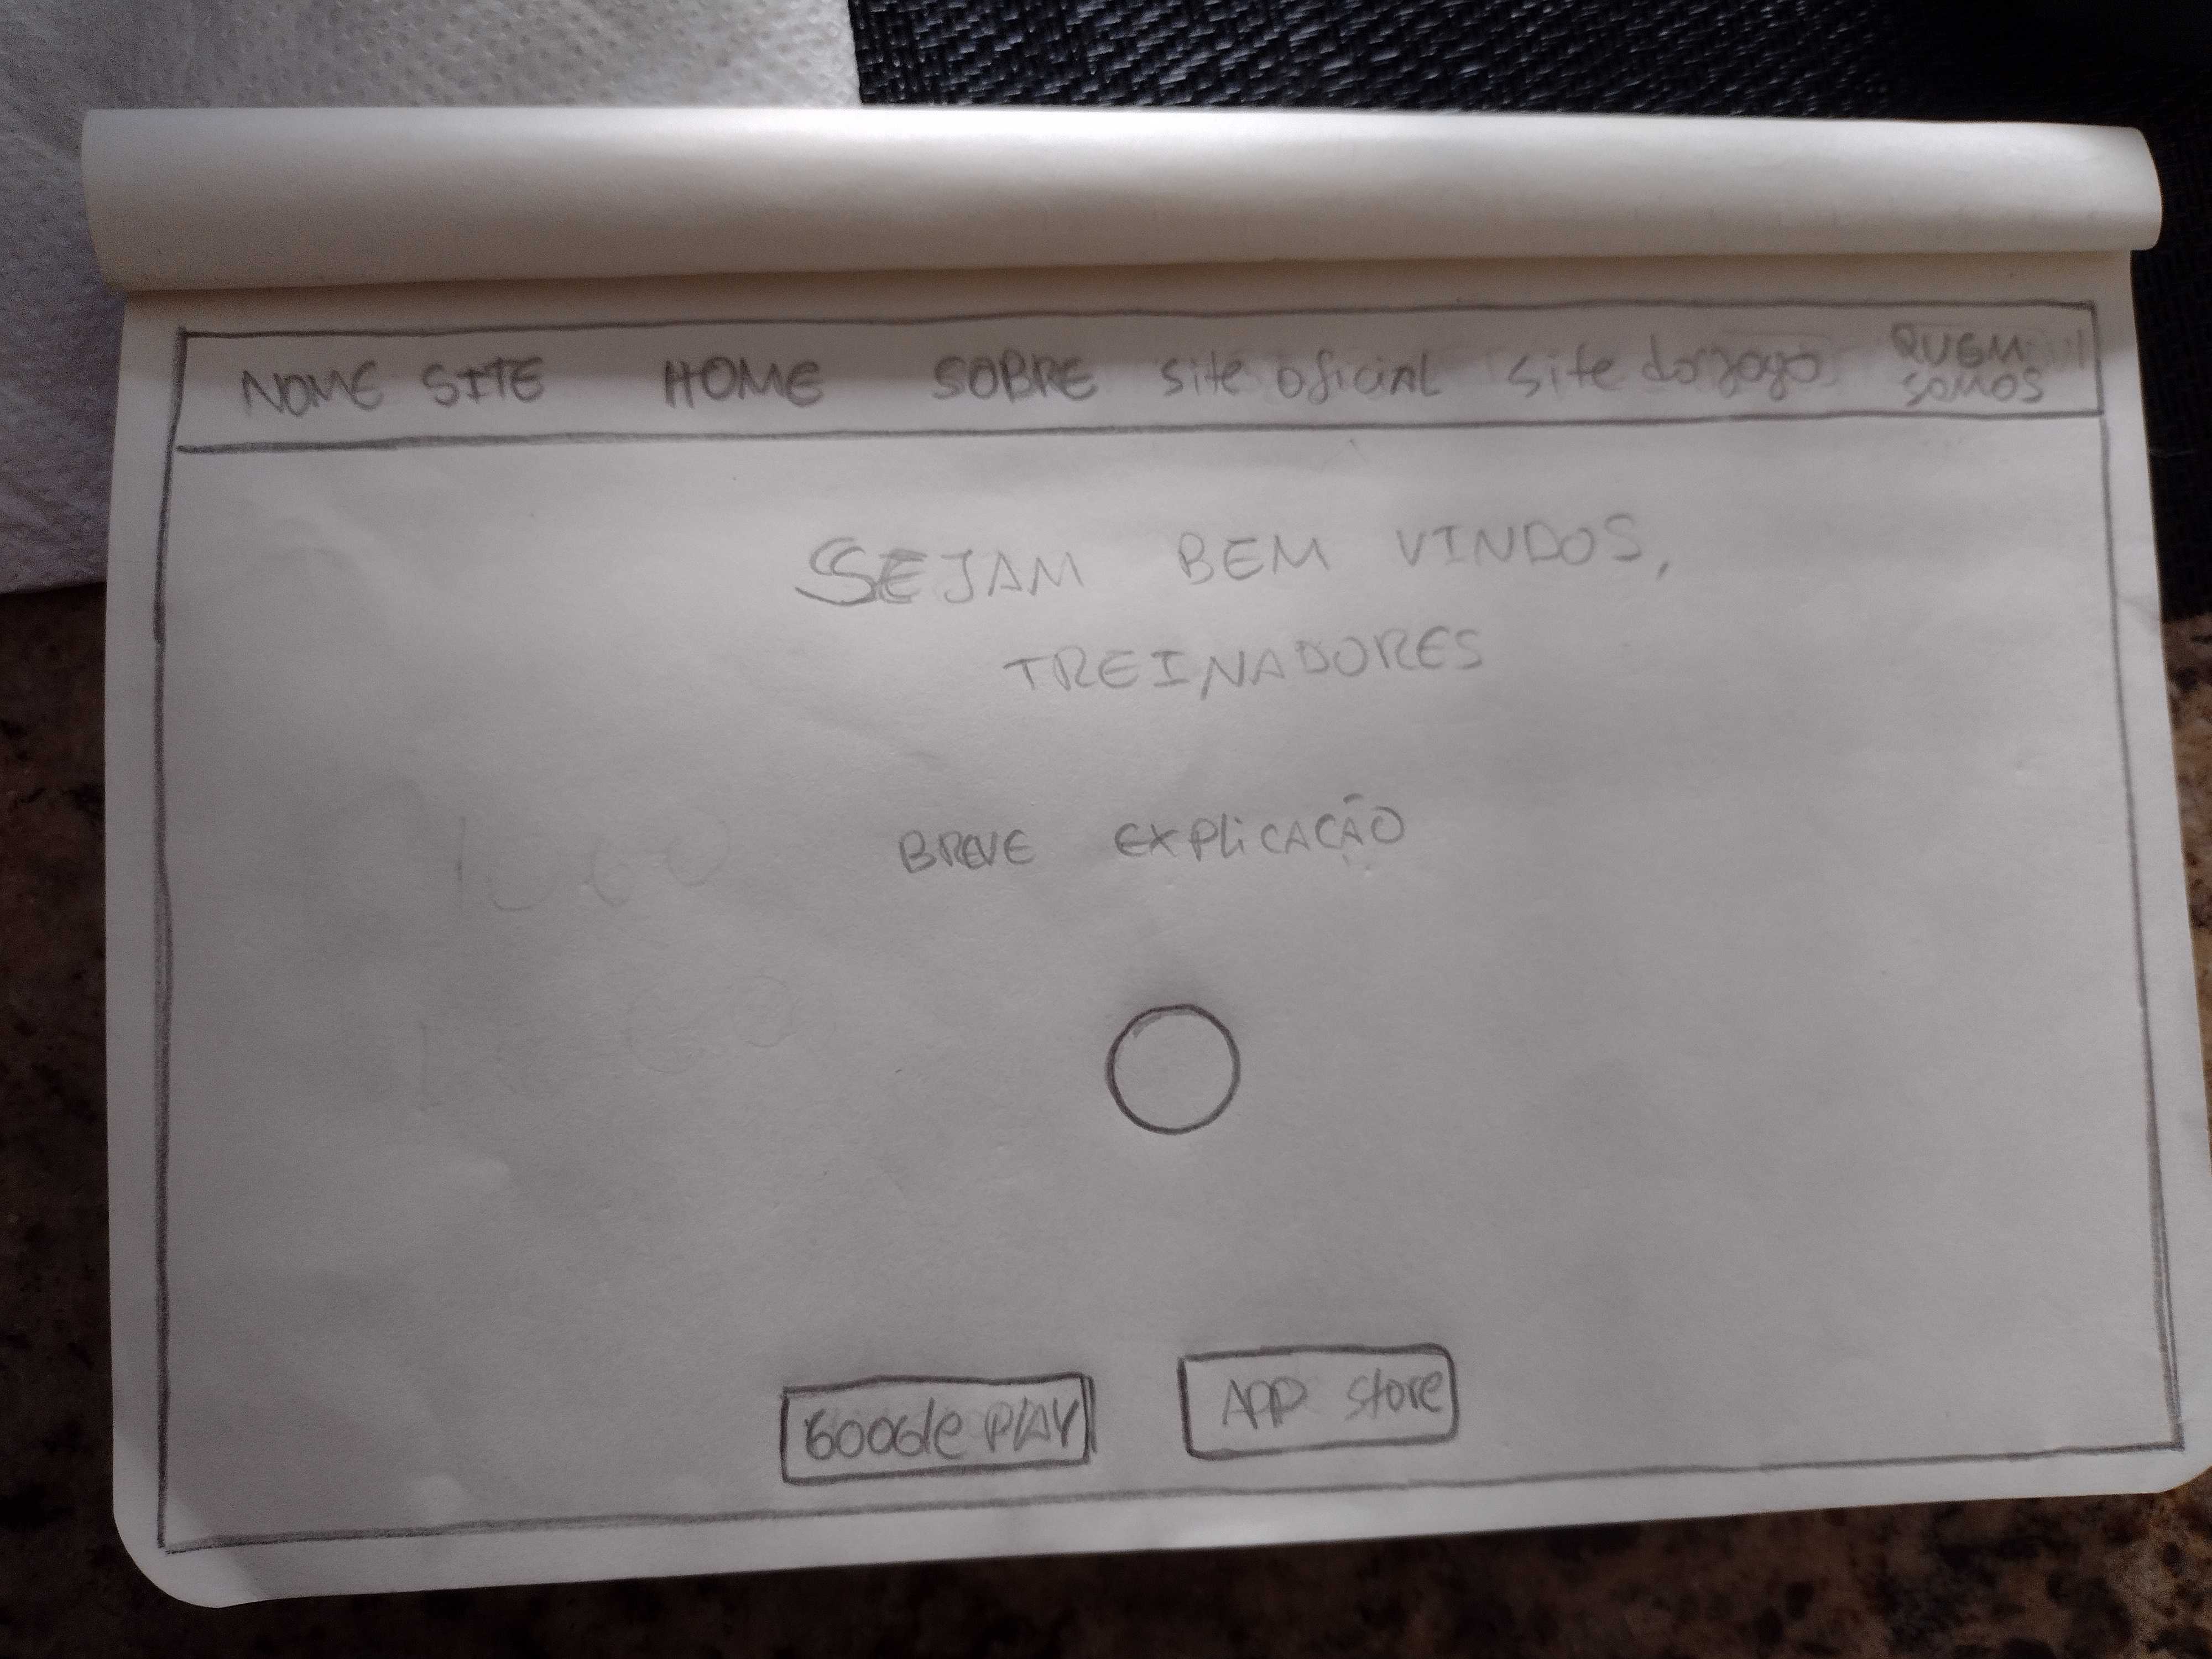 NOME SITE HOME SOBRE site oficial site do jogo QUEM SOMOS
SEJAM BEM VINDOS,
TREINADORES
BREVE EXPLICAÇÃO
Google PLAY APP store